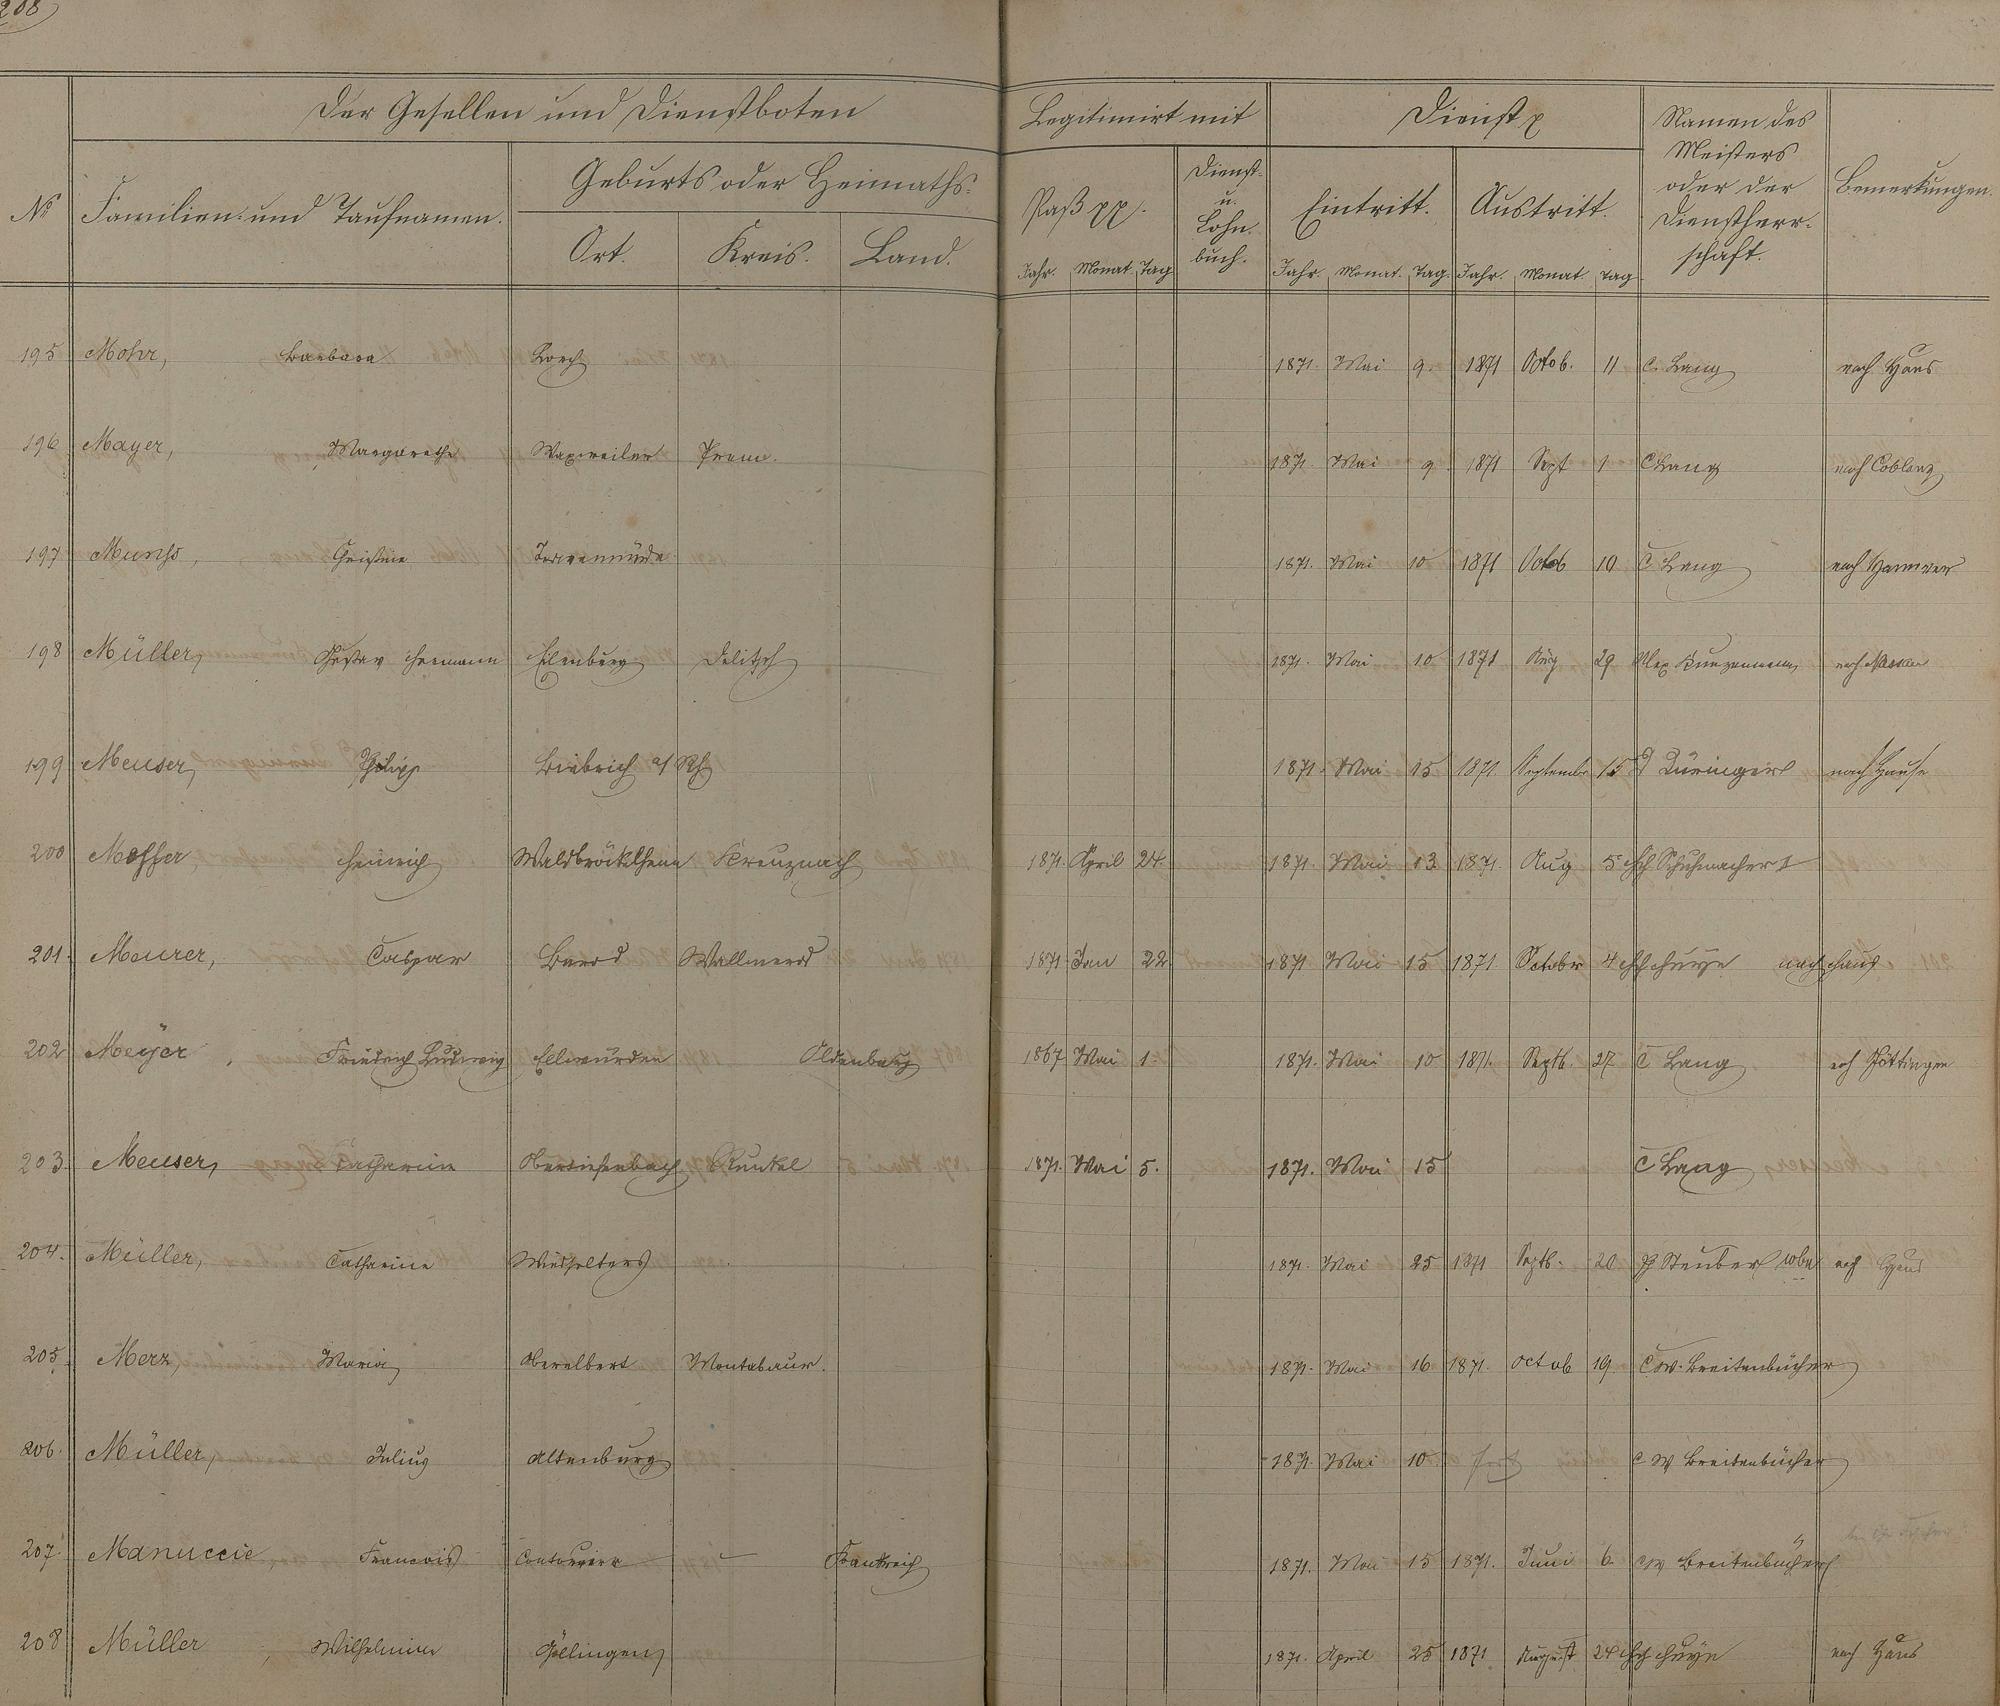 208
Der Gesellen und Dienstboten
Legitimirt mit
Dienst
Namen des Meisters oder der Dienstherr-schaft.
Bemerkungen.
No Familien- und Taufnamen.
Geburts oder Heimaths-
Ort. Kreis. Land.
Paß pp.
Dienst- u. Lohn-buch.
Eintritt. Austritt.
Jahr. Monat Tag Jahr. Monat. Tag. Jahr. Monat. Tag
195 Mohr, Barbara Lorch 1871. Mai 9. 1871 Octob. 11 C. Lang nach Haus
196 Mayer, Margarethe Waxweiler Prum. 1871. Mai 9. 1871 Sept 1 C Lang nach Coblenz
197 Christine Travemünde 1871. Mai 10 1871 Octob 10 C Lang nach Hannover
198 Müller, Gustav Hermann Eilenburg Delitzsch 1871. Mai 10 1871 Aug 29 Alex nach Nassau
199 Meuser, Philipp Biebrich a/Rh 1871. Mai 15 1871 September 15 Düringer nach Hause
200 Heinrich Kreuznach 1871. April 24 1871. Mai 13 1871. Aug 5 Schuhmacher
201. Meurer, Caspar Berod Wallmerod 1871 Jan 22 1871 Mai 15 1871 October 4 nach Haus
202 Meÿer, Friedrich Ludewig Ellwürden Oldenburg 1867 Mai 1. 1871. Mai 10 1871. Septb. 27 C Lang nach Göttingen
203. Meuser, Catharine Obertiefenbach Runkel 1871. Mai 5. 1871. Mai 15 C Lang
204. Müller, Catharine 1871. Mai 25 1871 Septb. 20 Steuber Wbe nach Haus
205. Merz, Maria Oberelbert Montabaur. 1871. Mai 16 1871. Octob 19. C W. Breitenbücher
206. Müller, Julius Altenburg 1871. Mai 10 fort C W Breitenbücher
207. Manuccie, Francois — Frankreich 1871. Mai 15 1871. Juni 6. CW Breitenbücher
208 Müller, Wilhelmine 1871. April 25 1871 August 24 nach Haus